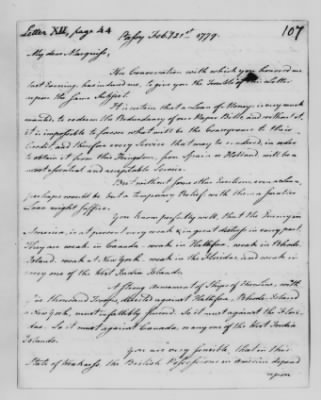 Letter XII, page 44
107
Passy Feb. 21st 1779
My dear Marquiss,
The Conversation with which you honored me
last Evening, has induced me, to give you the Trouble of this Letter
upon the same Subject.
It is certain that a Loan of Money is very much
wanted, to redeem the Redundancy of our Paper Bills and without it,
it is impossible to foresee what will be the Consequence to their
Credit and therefore every Service that may be rendered, in order
to obtain it from this Kingdom, from Spain or Holland will be a
most essential and acceptable Service.
But without some other Exertions, even a Loan,
perhaps would be but a temporary Relief, with them a smaller
Loan might suffice.
You know perfectly well, that the Enemy in
America, is at present very weak & in great distress in every part.
They are weak in Canada - weak in Hallifax - weak in Rhode
Island - weak at New York - weak in the Floridas, and weak in
every one of the West India Islands.
A strong Armament of Ships of the Line, with
five thousand Troops, directed against Hallifax, Rhode Island
or New York, must infallibly succeed. So it must against the Flori-
das. So it must against Canada, or any one of the West India
Islands.
You are very sensible, that in this
State of Weakness, the British Possessions in America depend
upon